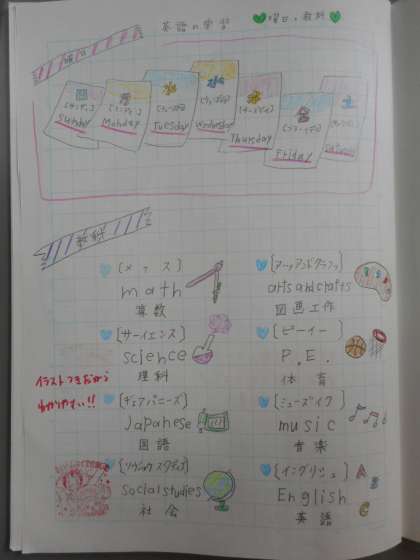 英語の学習
曜日・教科
曜日
日
[サンデー]
Sunday
月
[マンデー]
Monday
火
[チューズデイ]
Tuesday
水
[ウェンズデイ]
Wednesday
木
[サーズデー]
Thursday
金
[フライデイ]
Friday
土
教科
[マス]
math
算数
[アーツアンドクラフツ]
arts and crafts
図画工作
[サーイエンス]
science
理科
[ピーイー]
P.E.
体育
イラストつきだから
わかりやすい!!
[ヂャパニーズ]
Japanese
国語
[ミューズイク]
music
音楽
[ソウシャウスタディズ]
social studies
社会
[イングリシュ]
English
英語
A
B
C